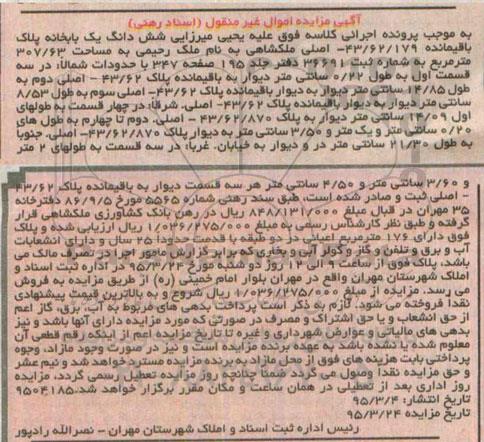 آگهی مزایده اموال غیر منقول (اسناد رهنی)
به موجب پرونده اجرائی کلاسه فوق علیه یحیی میرزایی شش دانگ یک بابخانه پلاک
باقیمانده ۴۳/۶۲/۱۷۹- اصلی ملکشاهی به نام ملک رحیمی به مساحت ۳۰۷/۶۳
مترمربع به شماره ثبت ۳۶۶۹۱ دفتر جلد ۱۹۵ صفحه ۳۴۷ با حدودات شمالا: در سه
قسمت اول به طول ۰/۲۲ سانتی متر دیوار به باقیمانده پلاک ۴۳/۶۲ - اصلی دوم به
طول ۱۴/۸۵ سانتی متر دیوار به باقیمانده پلاک ۴۳/۶۲- اصلی سوم به طول ۸/۵۳
سانتی متر دیوار به دیوار باقیمانده پلاک ۴۳/۶۲- اصلی. شرقا: در چهار قسمت به طولهای
اول ۱۴/۰۹ سانتی متر دیوار به پلاک ۴۳/۶۲/۸۷۰ - اصلی. دوم تا چهارم به طول های
۰/۲۰ سانتی متر و یک متر و ۳/۵۰ سانتی متر به دیوار پلاک ۴۳/۶۲/۸۷۰- اصلی. جنوبا
به طول ۲۱/۳۰ سانتی متر در و دیوار به خیابان. غربا: در سه قسمت به طولهای ۲ متر
و ۳/۶۰ سانتی متر و ۴/۵۰ سانتی متر هر سه قسمت دیوار به باقیمانده پلاک ۴۳/۶۲
- اصلی ثبت و صادر شده است، طبق سند رهنی شماره ۵۵۶۵ مورخ ۸۶/۹/۵ دفترخانه
۳۵ مهران در قبال مبلغ ۸۴۸/۱۳۱/۰۰۰ ریال در رهن بانک کشاورزی ملکشاهی قرار
گرفته و طبق نظر کارشناس رسمی به مبلغ ۱/۰۳۶/۲۷۵/۰۰۰ ریال ارزیابی شده و پلاک
فوق دارای ۱۷۶ مترمربع اعیانی در دو طبقه با قدمت حدودا ۲۵ سال و دارای انشعابات
آب و برق و تلفن و گاز و کولر آبی و بخاری که برابر گزارش مامور اجرا در تصرف مالک می
باشد، پلاک فوق از ساعت ۹ الی ۱۲ روز دو شنبه مورخ ۹۵/۳/۲۴ در اداره ثبت اسناد و
املاک شهرستان مهران واقع در مهران بلوار امام خمینی (ره) از طریق مزایده به فروش
می رسد. مزایده از مبلغ ۱/۰۳۶/۲۷۵/۰۰۰ ریال شروع و به بالاترین قیمت پیشنهادی
نقدا فروخته می شود. لازم به ذکر است پرداخت بدهی های مربوط به آب، برق، گاز اعم
از حق انشعاب و یا حق اشتراک و مصرف در صورتی که مورد مزایده دارای آنها باشد و نیز
بدهی های مالیاتی و عوارض شهرداری و غیره تا تاریخ مزایده اعم از اینکه رقم قطعی آن
معلوم شده یا نشده باشد به عهده برنده مزایده است و نیز در صورت وجود مازاد، وجوه
پرداختی بابت هزینه های فوق از محل مازاد به برنده مزایده مسترد خواهد شد و نیم عشر
و حق مزایده نقدا وصول می گردد ضمنا چنانچه روز مزایده تعطیل رسمی گردد، مزایده
روز اداری بعد از تعطیلی در همان ساعت و مکان مقرر برگزار خواهد شد.۹۵۰۴۱۸۵
تاریخ انتشار: ۹۵/۳/۴
تاریخ مزایده ۹۵/۳/۲۴
رئیس اداره ثبت اسناد و املاک شهرستان مهران - نصرالله رادپور